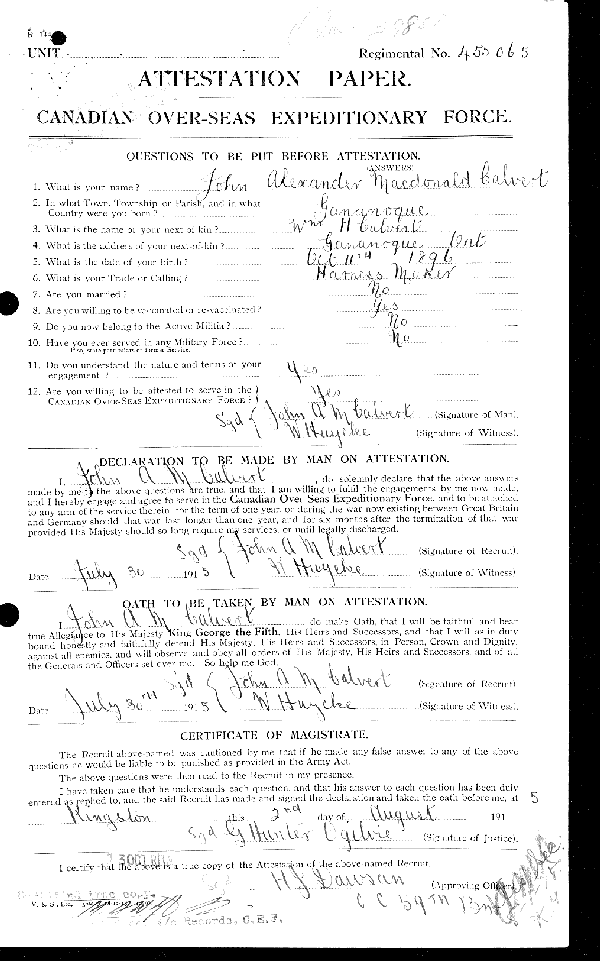 UNIT
Regimental No. 455065
ATTESTATION PAPER.
CANADIAN OVER-SEAS EXPEDITIONARY FORCE.
QUESTIONS TO BE PUT BEFORE ATTESTATION.
(ANSWERS)
1. What is your name? John Alexander Macdonald Calvert
2. In what Town, Township or Parish, and in what
Country were you born? Gananoque
3. What is the name of your next-of-kin? Wm H Calvert
4. What is the address of your next-of-kin? Gananoque Ont
5. What is the date of your birth? Oct 11th 1896
6. What is your Trade or Calling? Harness Maker
7. Are you married? No
8. Are you willing to be vaccinated or re-vaccinated? Yes
9. Do you now belong to the Active Militia? No
10. Have you ever served in any Military Force? No
If so, state particulars of former Service.
11. Do you understand the nature and terms of your
engagement? Yes
12. Are you willing to be attested to serve in the
CANADIAN OVER-SEAS EXPEDITIONARY FORCE? Yes
Sgd { John A M Calvert (Signature of Man).
W Huycke (Signature of Witness).
DECLARATION TO BE MADE BY MAN ON ATTESTATION.
I, John A M Calvert, do solemnly declare that the above answers
made by me to the above questions are true, and that I am willing to fulfil the engagements by me now made,
and I hereby engage and agree to serve in the Canadian Over-Seas Expeditionary Force, and to be attached
to any arm of the service therein, for the term of one year, or during the war now existing between Great Britain
and Germany should that war last longer than one year, and for six months after the termination of that war
provided His Majesty should so long require my services, or until legally discharged.
Sgd { John A M Calvert (Signature of Recruit)
Date July 30 1915 { W Huycke (Signature of Witness)
OATH TO BE TAKEN BY MAN ON ATTESTATION.
I, John A M Calvert do make Oath, that I will be faithful and bear
true Allegiance to His Majesty King George the Fifth, His Heirs and Successors, and that I will as in duty
bound honestly and faithfully defend His Majesty, His Heirs and Successors, in Person, Crown and Dignity,
against all enemies, and will observe and obey all orders of His Majesty, His Heirs and Successors, and of all
the Generals and Officers set over me. So help me God.
Sgd { John A M Calvert (Signature of Recruit)
Date July 30th 1915 { W Huycke (Signature of Witness)
CERTIFICATE OF MAGISTRATE.
The Recruit above-named was cautioned by me that if he made any false answer to any of the above
questions he would be liable to be punished as provided in the Army Act.
The above questions were then read to the Recruit in my presence.
I have taken care that he understands each question, and that his answer to each question has been duly
entered as replied to, and the said Recruit has made and signed the declaration and taken the oath before me, at
Kingston this 2nd day of August 1915
Sgd G Hunter Ogilvie (Signature of Justice)
I certify that the above is a true copy of the Attestation of the above-named Recruit.
H J Dawson (Approving Officer)
O C 59th Btn
Records, C.E.F.